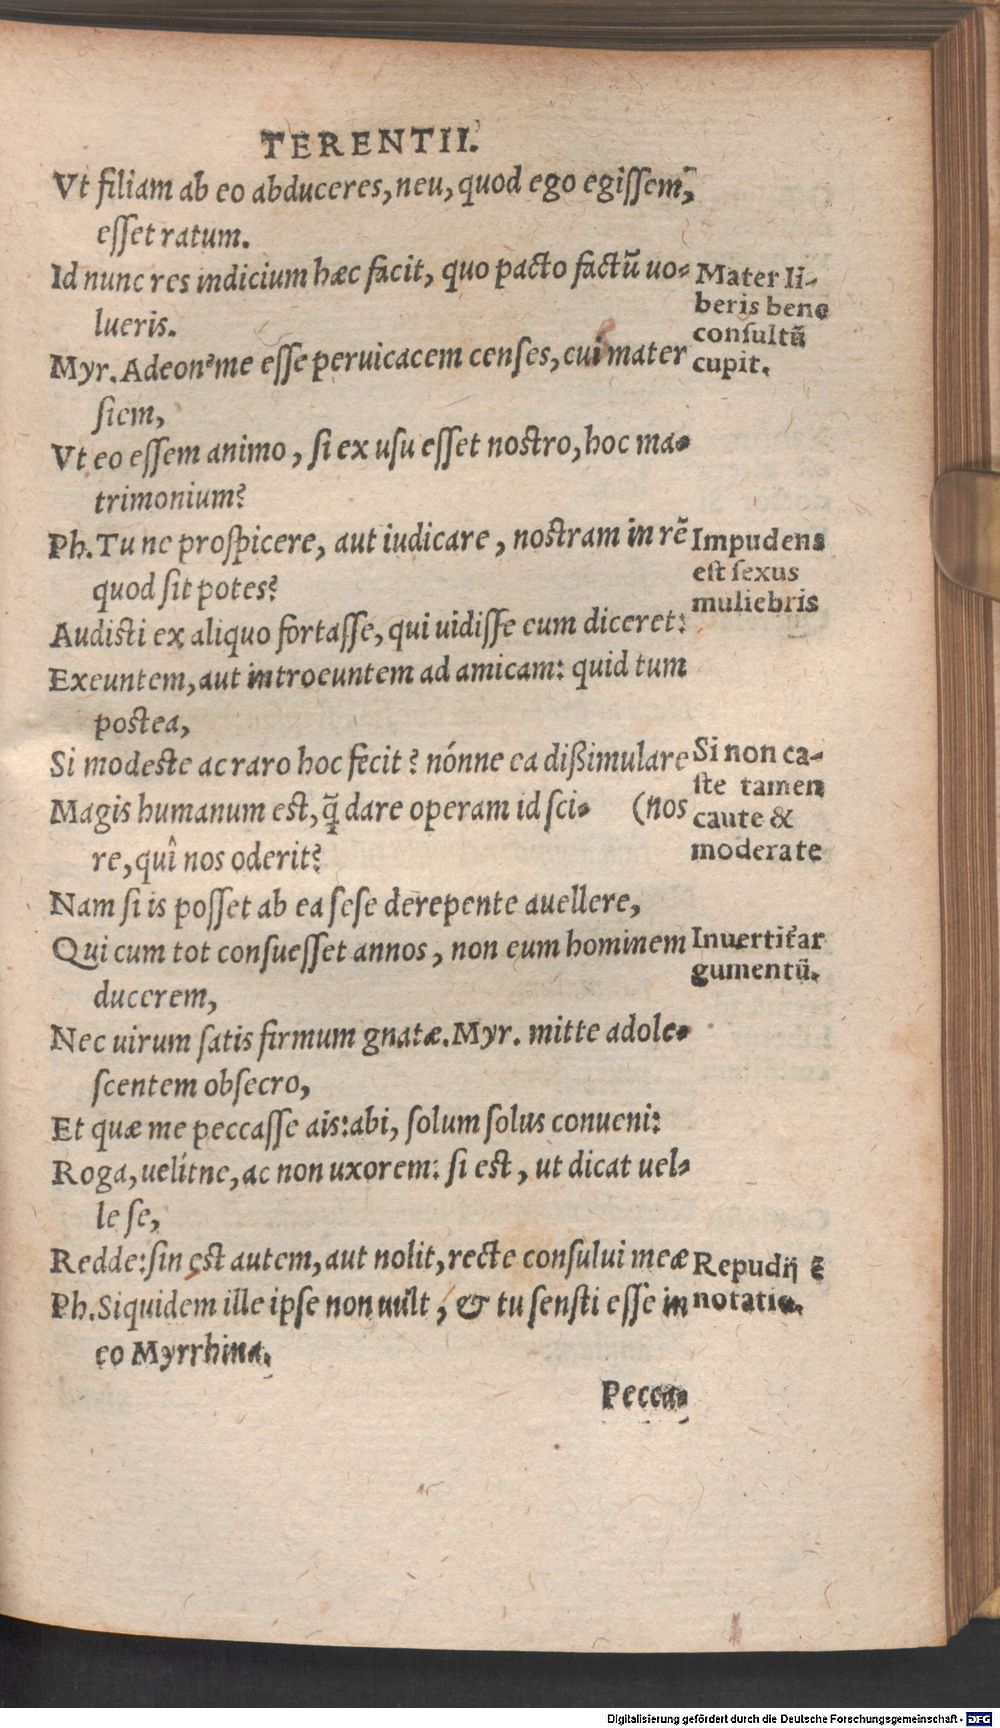 TERENTII.
Vt filiam ab eo abduceres, neu, quod ego egissem,
esset ratum.
Id nunc res indicium hæc facit, quo pacto factũ uo-
lueris.
Mater li-
beris bene
consultũ
cupit.
Myr. Adeon' me esse peruicacem censes, cui mater
siem,
Vt eo essem animo, si ex usu esset nostro, hoc ma-
trimonium?
Ph. Tu ne prospicere, aut iudicare, nostram in rẽ
quod sit potes?
Impudens
est sexus
muliebris
Audisti ex aliquo fortasse, qui uidisse eum diceret:
Exeuntem, aut introeuntem ad amicam: quid tum
postea,
Si modeste ac raro hoc fecit? nónne ea dißimulare
Magis humanum est, q̃ dare operam id sci- (nos
re, quî nos oderit?
Si non ca-
ste tamen
caute &
moderate
Nam si is posset ab ea sese derepente auellere,
Qui cum tot consuesset annos, non eum hominem
ducerem,
Inuertit̃ ar
gumentũ.
Nec uirum satis firmum gnatæ. Myr. mitte adole-
scentem obsecro,
Et quæ me peccasse ais: abi, solum solus conueni:
Roga, uelítne, ac non uxorem: si est, ut dicat uel-
le se,
Redde: sin est autem, aut nolit, recte consului meæ
Ph. Siquidem ille ipse non uult, & tu sensti esse in
eo Myrrhina.
Repudij ẽ
notatio.
Pecca-
Digitalisierung gefördert durch die Deutsche Forschungsgemeinschaft - DFG